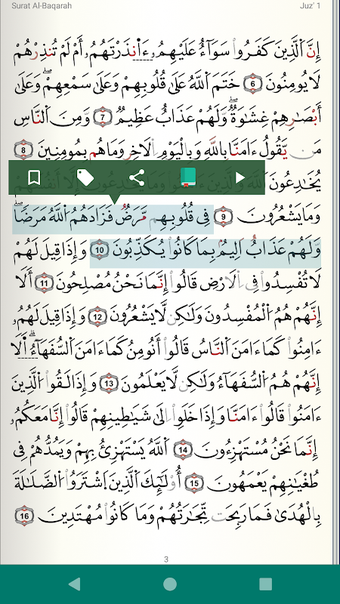 Surat Al-Baqarah Juz' 1
إِنَّ ٱلَّذِينَ كَفَرُوا۟ سَوَآءٌ عَلَيْهِمُۥ ءَآنذَرْتَهُمُۥ أَمْ لَمْ تُنذِرْهُمْ
لَا يُومِنُونَ 6 خَتَمَ ٱللَّهُ عَلَىٰ قُلُوبِهِمْ وَعَلَىٰ سَمْعِهِمْ وَعَلَىٰ
أَبْصَـٰرِهِمْ غِشَـٰوَةٌ وَلَهُمْ عَذَابٌ عَظِيمٌ 7 وَمِنَ ٱلنَّاسِ
مَنْ يَّقُولُ ءَامَنَّا بِٱللَّهِ وَبِٱلْيَوْمِ ٱلَاخِرِ وَمَا هُم بِمُومِنِينَ 8
يُخَـٰدِعُونَ
وَمَا يَشْعُرُونَ 9 فِى قُلُوبِهِم مَّرَضٌ فَزَادَهُمُ ٱللَّهُ مَرَضًا
وَلَهُمْ عَذَابٌ أَلِيمٌۢ بِمَا كَانُوا۟ يُكَذِّبُونَ 10 وَإِذَا قِيلَ لَهُمْ
لَا تُفْسِدُوا۟ فِى ٱلَارْضِ قَالُوٓا۟ إِنَّمَا نَحْنُ مُصْلِحُونَ 11 أَلَآ
إِنَّهُمْ هُمُ ٱلْمُفْسِدُونَ وَلَـٰكِن لَّا يَشْعُرُونَ 12 وَإِذَا قِيلَ لَهُمُۥٓ
ءَامِنُوا۟ كَمَآ ءَامَنَ ٱلنَّاسُ قَالُوٓا۟ أَنُومِنُ كَمَآ ءَامَنَ ٱلسُّفَهَآءُ أَلَآ
إِنَّهُمْ هُمُ ٱلسُّفَهَآءُ وَلَـٰكِن لَّا يَعْلَمُونَ 13 وَإِذَا لَقُوا۟ ٱلَّذِينَ
ءَامَنُوا۟ قَالُوٓا۟ ءَامَنَّا وَإِذَا خَلَوِا۟ إِلَىٰ شَيَـٰطِينِهِمْ قَالُوٓا۟ إِنَّا مَعَكُمُۥٓ
إِنَّمَا نَحْنُ مُسْتَهْزِءُونَ 14 ٱللَّهُ يَسْتَهْزِئُ بِهِمْ وَيَمُدُّهُمْ فِى
طُغْيَـٰنِهِمْ يَعْمَهُونَ 15 أُو۟لَـٰٓئِكَ ٱلَّذِينَ ٱشْتَرَوُا۟ ٱلضَّلَـٰلَةَ
بِٱلْهُدَىٰ فَمَا رَبِحَت تِّجَـٰرَتُهُمْ وَمَا كَانُوا۟ مُهْتَدِينَ 16
3